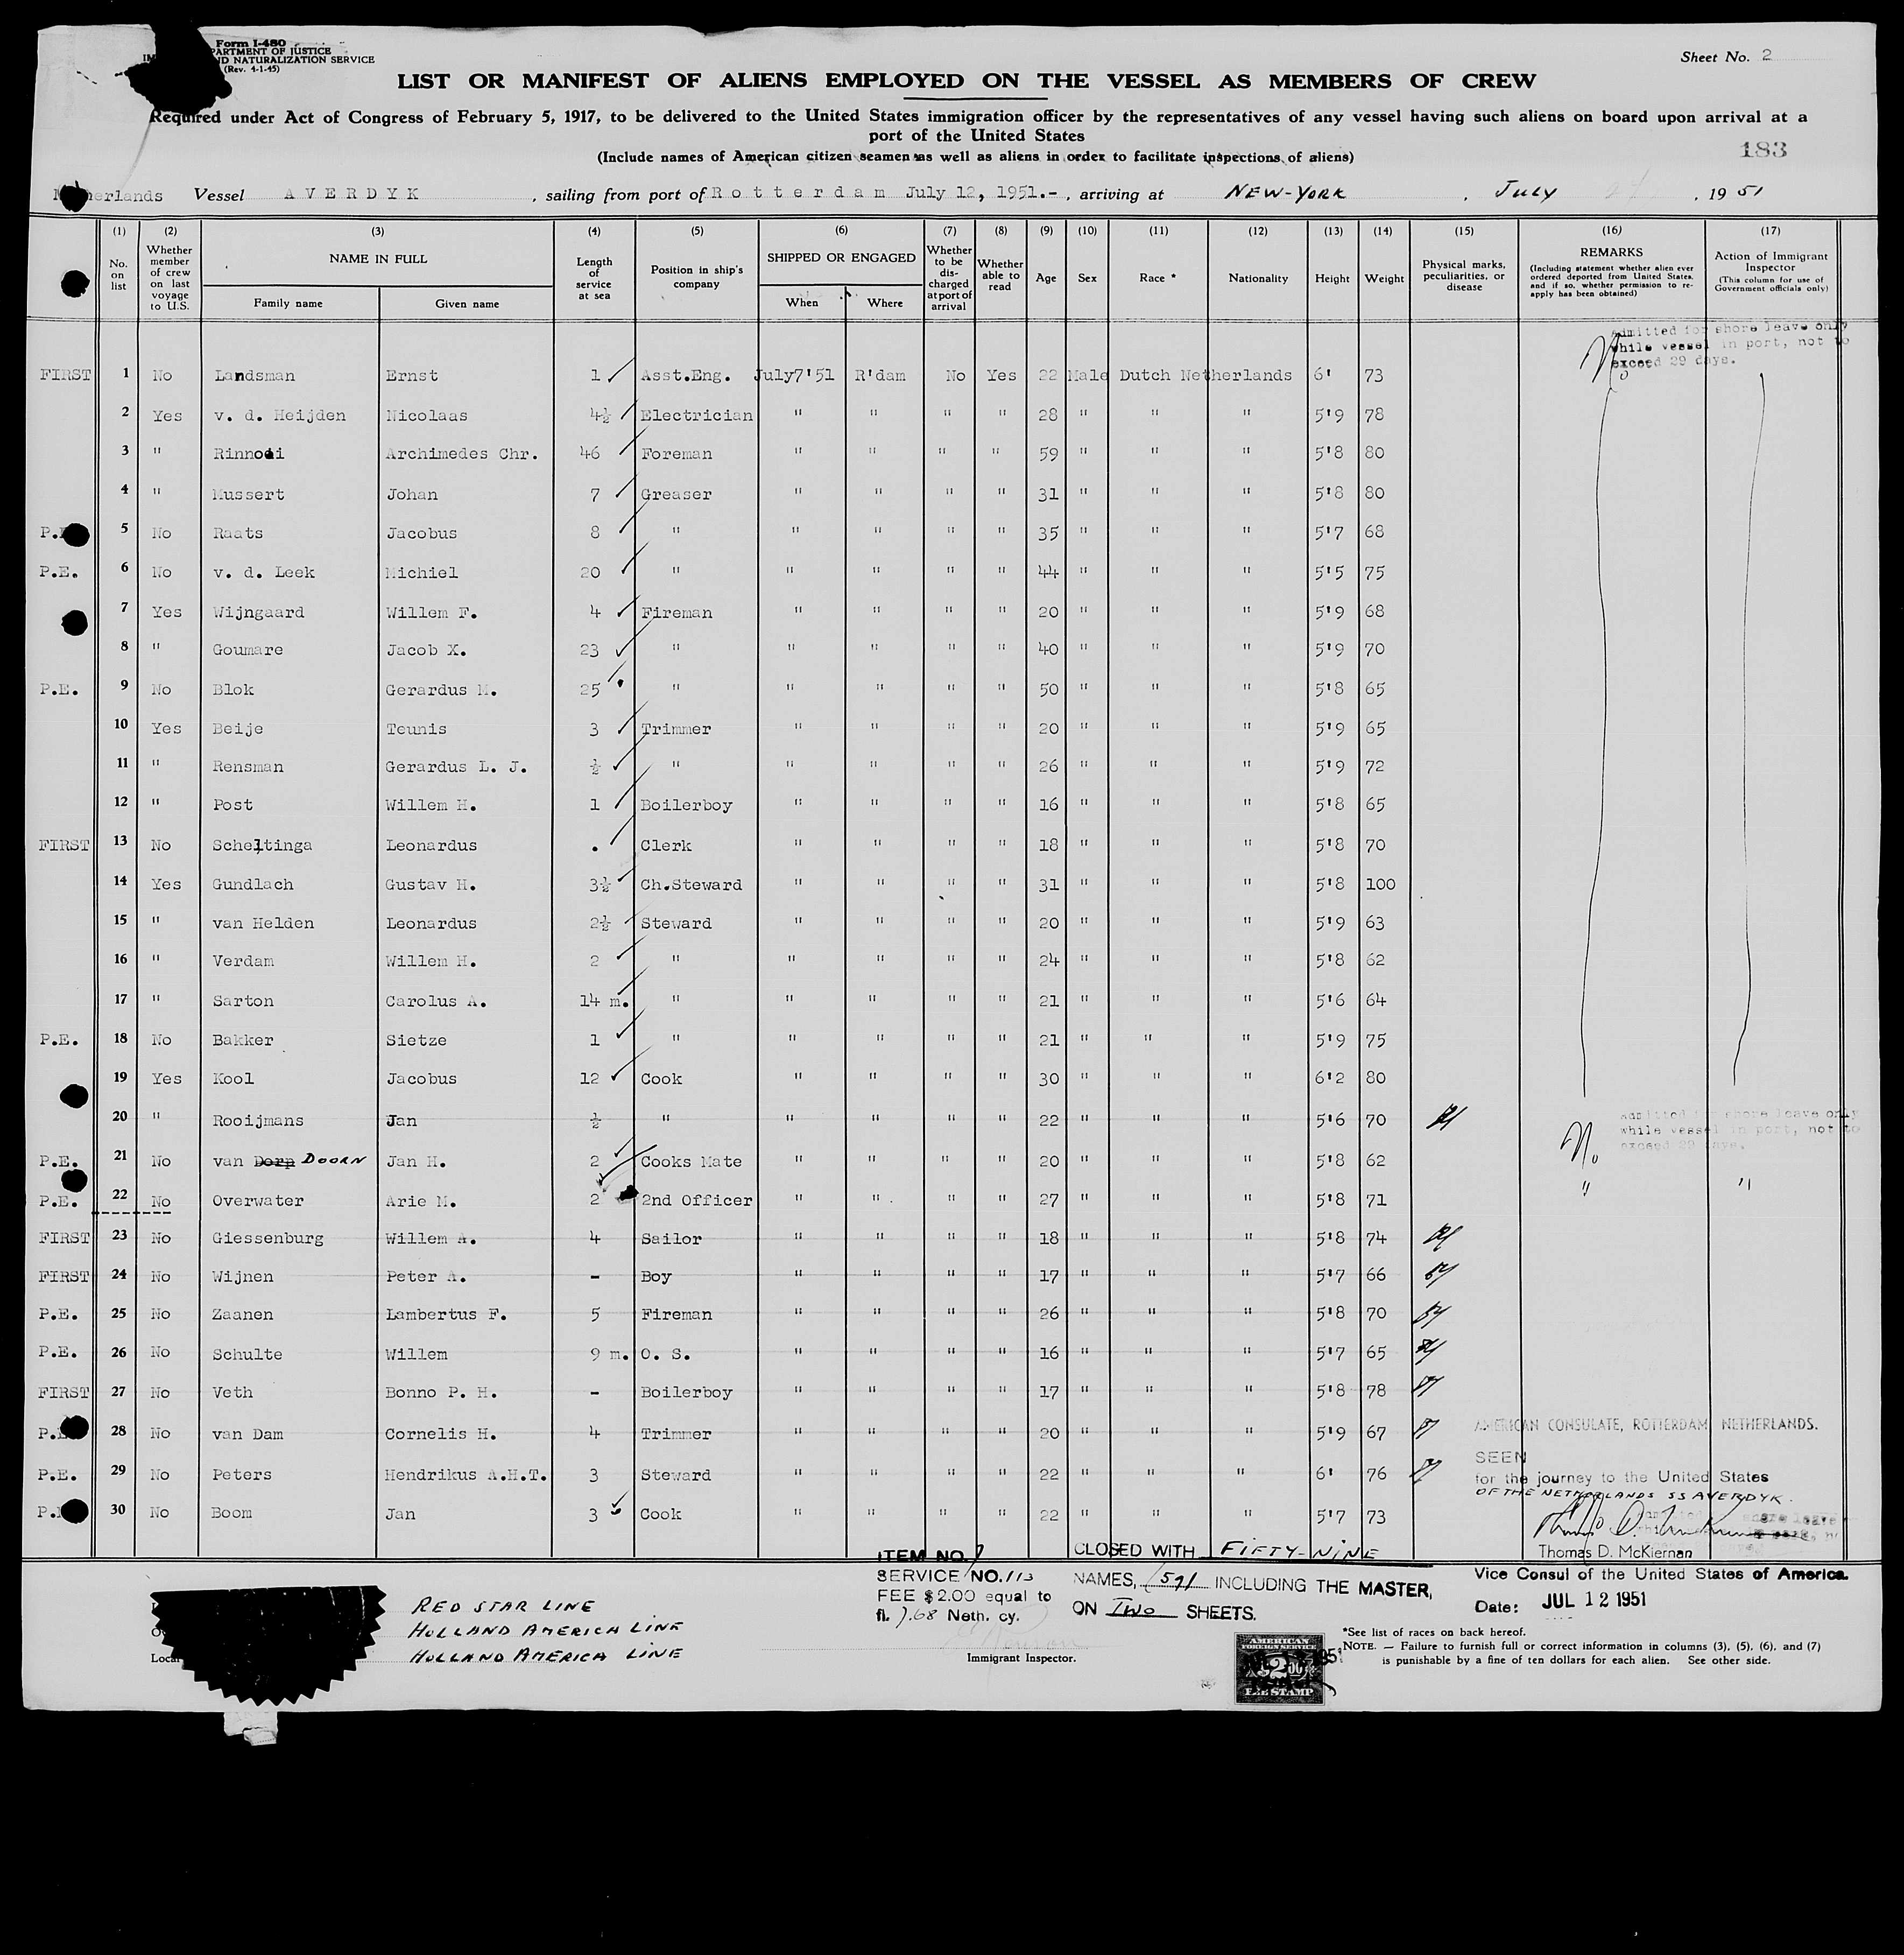 Form I-480
PARTMENT OF JUSTICE
D NATURALIZATION SERVICE
(Rev. 4-1-45)
Sheet No. 2
LIST OR MANIFEST OF ALIENS EMPLOYED ON THE VESSEL AS MEMBERS OF CREW
Required under Act of Congress of February 5, 1917, to be delivered to the United States immigration officer by the representatives of any vessel having such aliens on board upon arrival at a
port of the United States
(Include names of American citizen seamen as well as aliens in order to facilitate inspections of aliens)
183
Netherlands Vessel AVERDYK , sailing from port of Rotterdam July 12, 1951.- , arriving at NEW-YORK , JULY , 19 51
(1) (2) (3) (4) (5) (6) (7) (8) (9) (10) (11) (12) (13) (14) (15) (16) (17)
No. on list
Whether member of crew on last voyage to U.S.
NAME IN FULL
Family name Given name
Length of service at sea
Position in ship's company
SHIPPED OR ENGAGED
When Where
Whether to be discharged at port of arrival
Whether able to read
Age
Sex
Race *
Nationality
Height
Weight
Physical marks, peculiarities, or disease
REMARKS
(Including statement whether alien ever ordered deported from United States, and if so, whether permission to re-apply has been obtained)
Action of Immigrant Inspector
(This column for use of Government officials only)
admitted for shore leave only
while vessel in port, not to
exceed 29 days.
FIRST 1 No Landsman Ernst 1 Asst.Eng. July7'51 R'dam No Yes 22 Male Dutch Netherlands 6' 73 No
2 Yes v. d. Heijden Nicolaas 4½ Electrician " " " " 28 " " " 5'9 78
3 " Rinnooi Archimedes Chr. 46 Foreman " " " " 59 " " " 5'8 80
4 " Mussert Johan 7 Greaser " " " " 31 " " " 5'8 80
P. 5 No Raats Jacobus 8 " " " " " 35 " " " 5'7 68
P.E. 6 No v. d. Leek Michiel 20 " " " " " 44 " " " 5'5 75
7 Yes Wijngaard Willem F. 4 Fireman " " " " 20 " " " 5'9 68
8 " Goumare Jacob X. 23 " " " " " 40 " " " 5'9 70
P.E. 9 No Blok Gerardus M. 25 " " " " " 50 " " " 5'8 65
10 Yes Beije Teunis 3 Trimmer " " " " 20 " " " 5'9 65
11 " Rensman Gerardus L. J. ½ " " " " " 26 " " " 5'9 72
12 " Post Willem H. 1 Boilerboy " " " " 16 " " " 5'8 65
FIRST 13 No Scheltinga Leonardus . Clerk " " " " 18 " " " 5'8 70
14 Yes Gundlach Gustav H. 3½ Ch.Steward " " " " 31 " " " 5'8 100
15 " van Helden Leonardus 2½ Steward " " " " 20 " " " 5'9 63
16 " Verdam Willem H. 2 " " " " " 24 " " " 5'8 62
17 " Sarton Carolus A. 14 m. " " " " " 21 " " " 5'6 64
P.E. 18 No Bakker Sietze 1 " " " " " 21 " " " 5'9 75
19 Yes Kool Jacobus 12 Cook " " " " 30 " " " 6'2 80
20 " Rooijmans Jan ½ " " " " " 22 " " " 5'6 70
admitted for shore leave only
while vessel in port, not to
exceed 29 days.
P.E. 21 No van Dorp DOORN Jan H. 2 Cooks Mate " " " " 20 " " " 5'8 62 No
P.E. 22 No Overwater Arie M. 2 2nd Officer " " " " 27 " " " 5'8 71 " "
FIRST 23 No Giessenburg Willem A. 4 Sailor " " " " 18 " " " 5'8 74
FIRST 24 No Wijnen Peter A. - Boy " " " " 17 " " " 5'7 66
P.E. 25 No Zaanen Lambertus F. 5 Fireman " " " " 26 " " " 5'8 70
P.E. 26 No Schulte Willem 9 m. O. S. " " " " 16 " " " 5'7 65
FIRST 27 No Veth Bonno P. H. - Boilerboy " " " " 17 " " " 5'8 78
P. 28 No van Dam Cornelis H. 4 Trimmer " " " " 20 " " " 5'9 67
P.E. 29 No Peters Hendrikus A.H.T. 3 Steward " " " " 22 " " " 6' 76
P. 30 No Boom Jan 3 Cook " " " " 22 " " " 5'7 73
AMERICAN CONSULATE, ROTTERDAM, NETHERLANDS.
SEEN
for the journey to the United States
OF THE NETHERLANDS SS AVERDYK.
Thomas D. McKiernan
Vice Consul of the United States of America.
Date: JUL 12 1951
ITEM NO. 7
SERVICE NO. 113
FEE $2.00 equal to
fl. 7.68 Neth. cy.
CLOSED WITH FIFTY-NINE
NAMES, /59/ INCLUDING THE MASTER,
ON TWO SHEETS.
RED STAR LINE
HOLLAND AMERICA LINE
Local HOLLAND AMERICA LINE
Immigrant Inspector.
AMERICAN
FOREIGN SERVICE
$2.00
FEE STAMP
*See list of races on back hereof.
NOTE. — Failure to furnish full or correct information in columns (3), (5), (6), and (7)
is punishable by a fine of ten dollars for each alien. See other side.